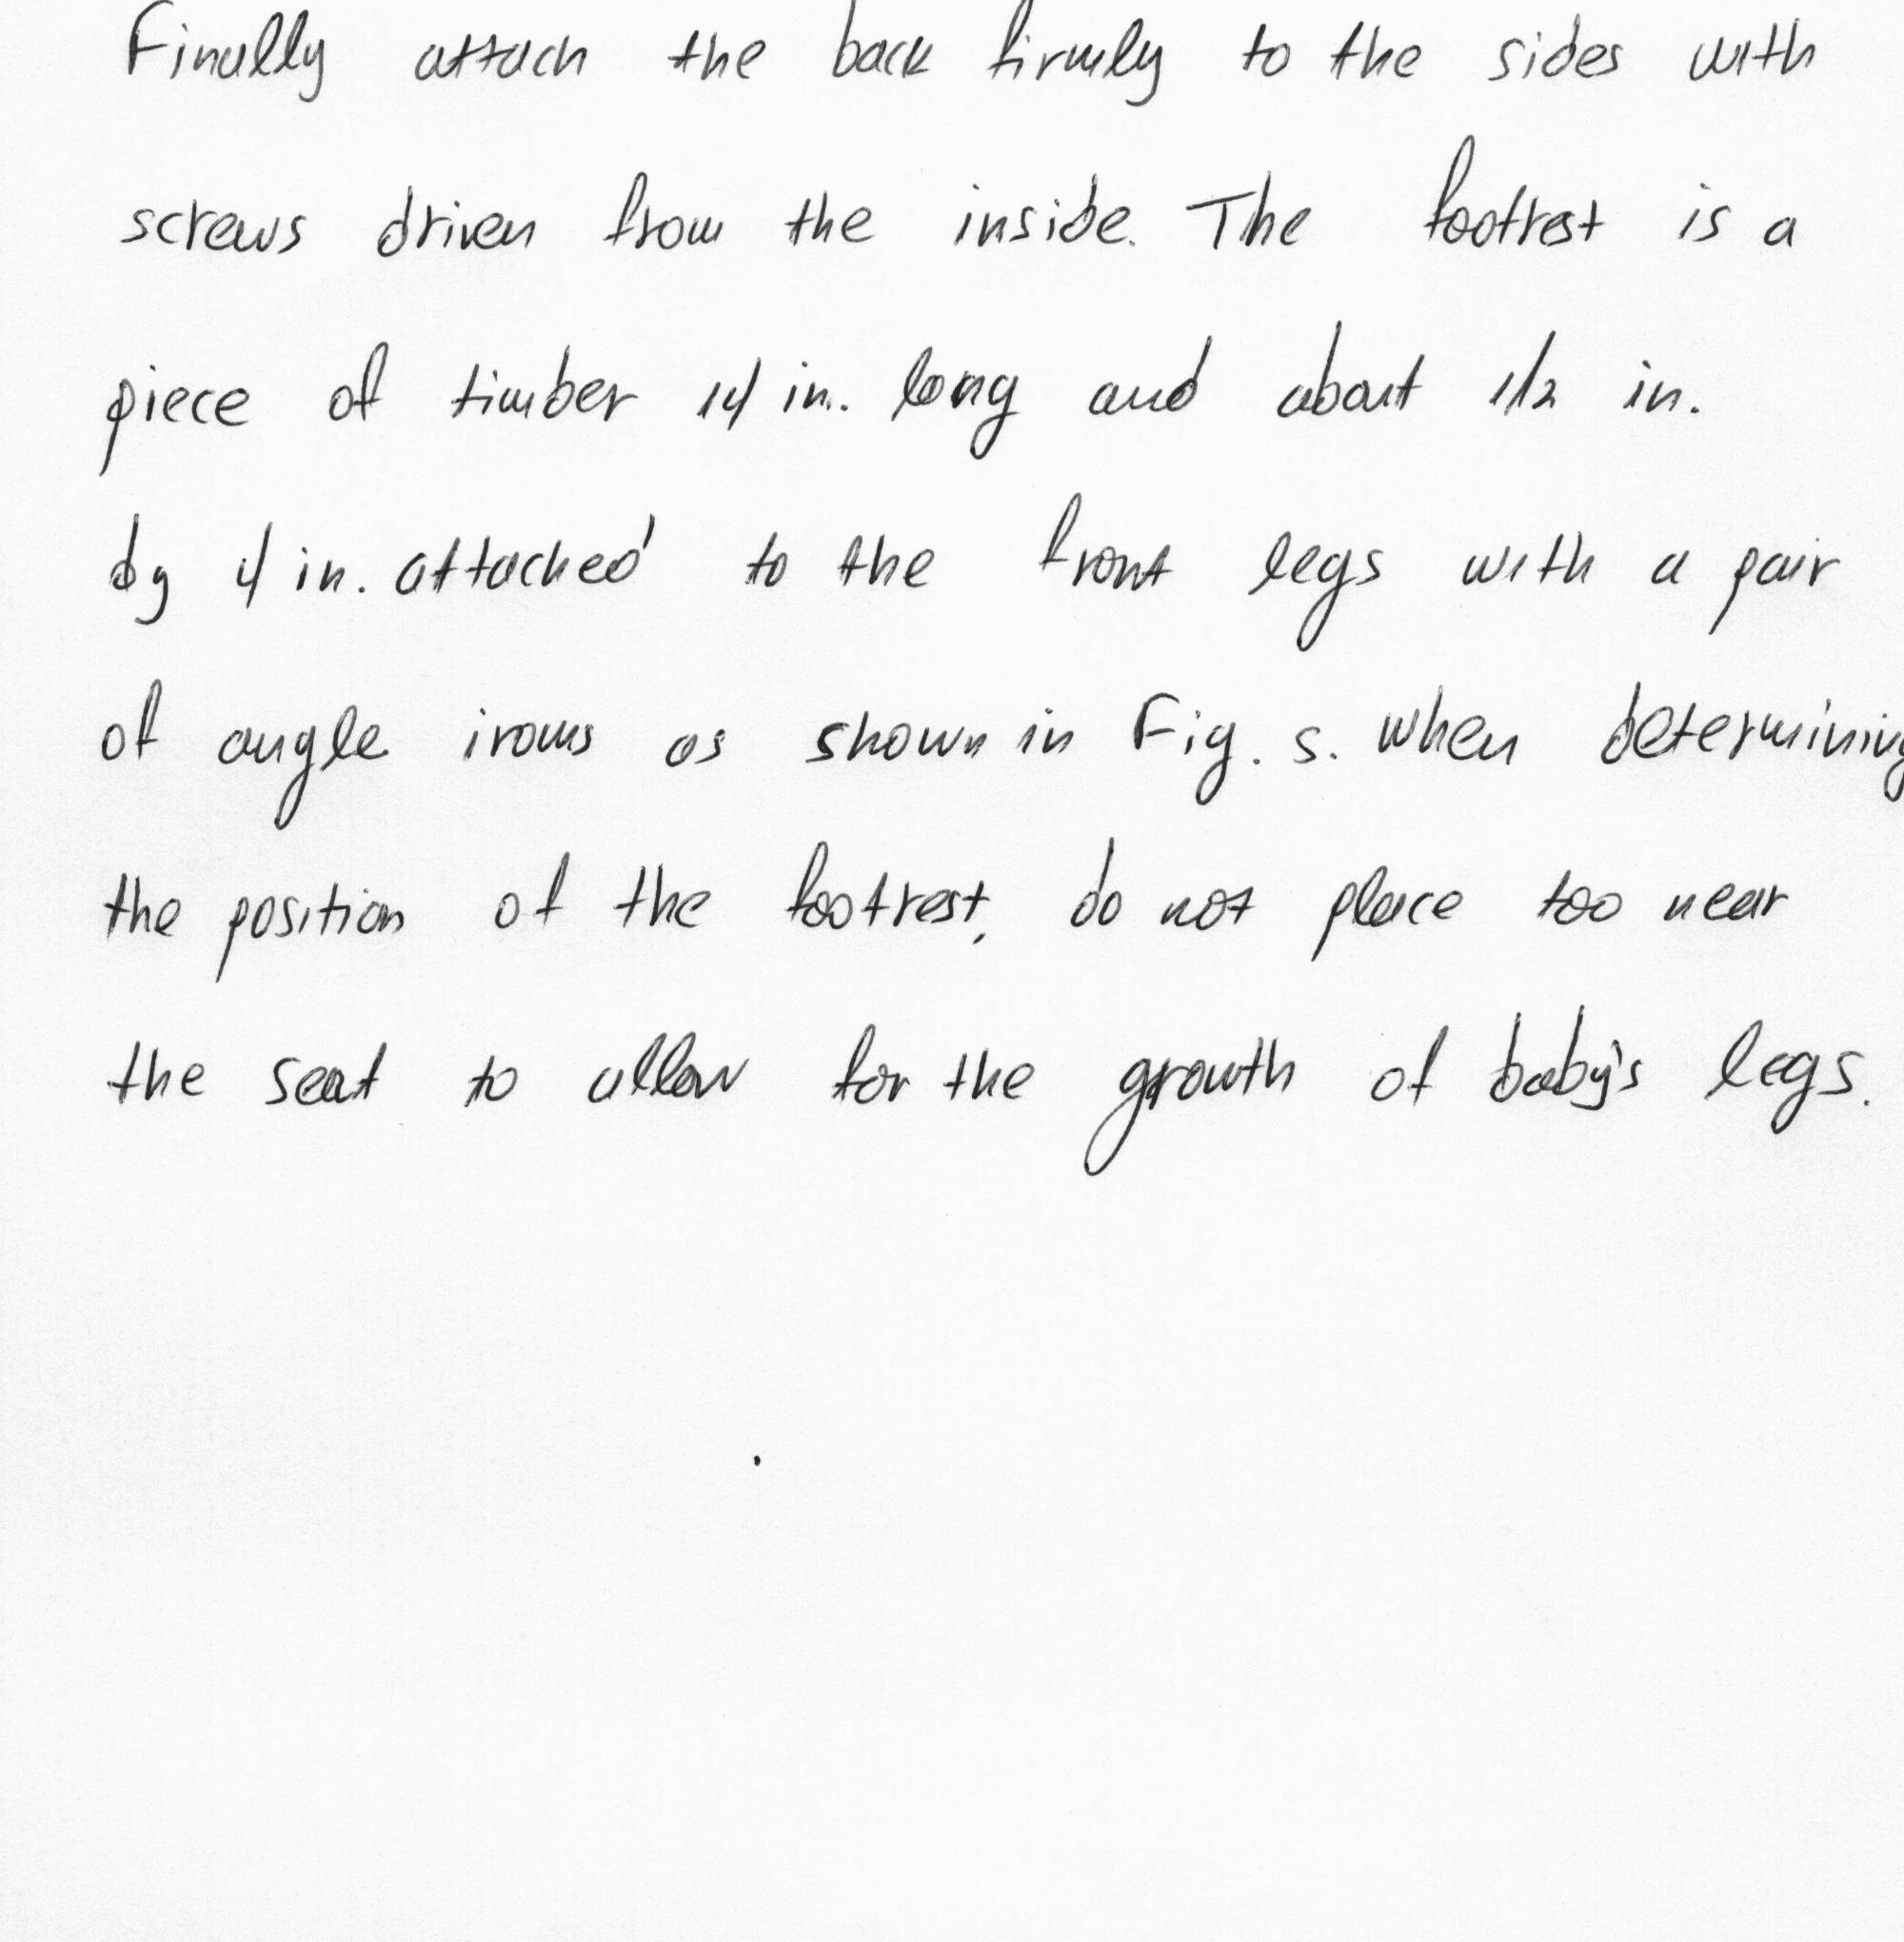 Finally attach the back firmly to the sides with
screws driven from the inside. The footrest is a
piece of timber 14 in. long and about 1/2 in.
by 4 in. attached to the front legs with a pair
of angle irons as shown in Fig. s. When determining
the position of the footrest, do not place too near
the seat to allow for the growth of baby's legs.